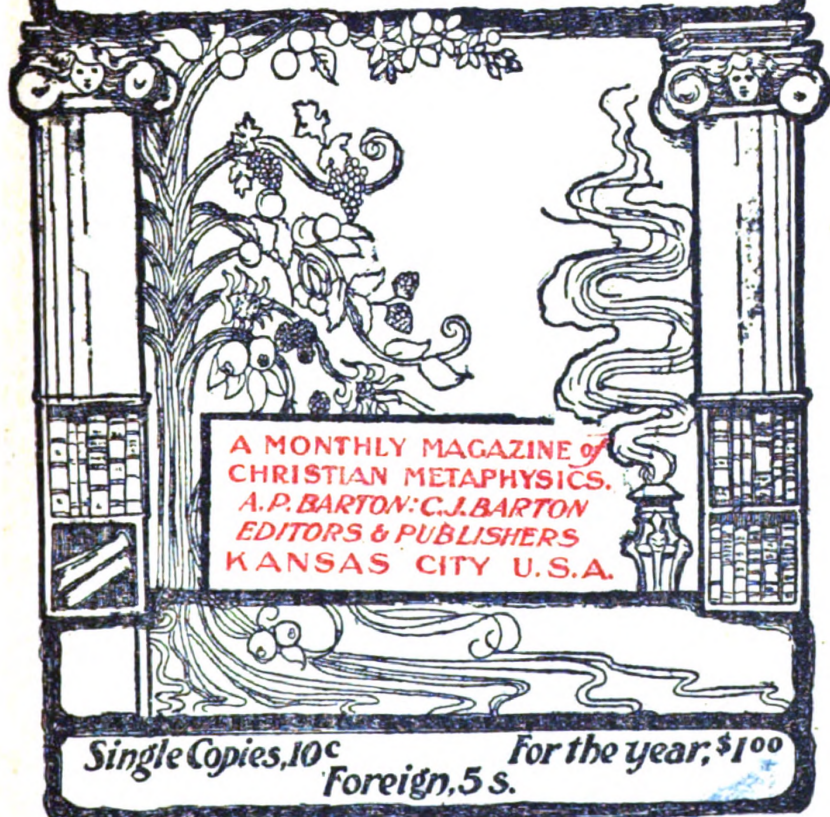 A MONTHLY MAGAZINE of
CHRISTIAN METAPHYSICS.
A.P. BARTON: C.J. BARTON
EDITORS & PUBLISHERS
KANSAS CITY U.S.A.
Single Copies, 10c For the year, $1 00
Foreign, 5 s.